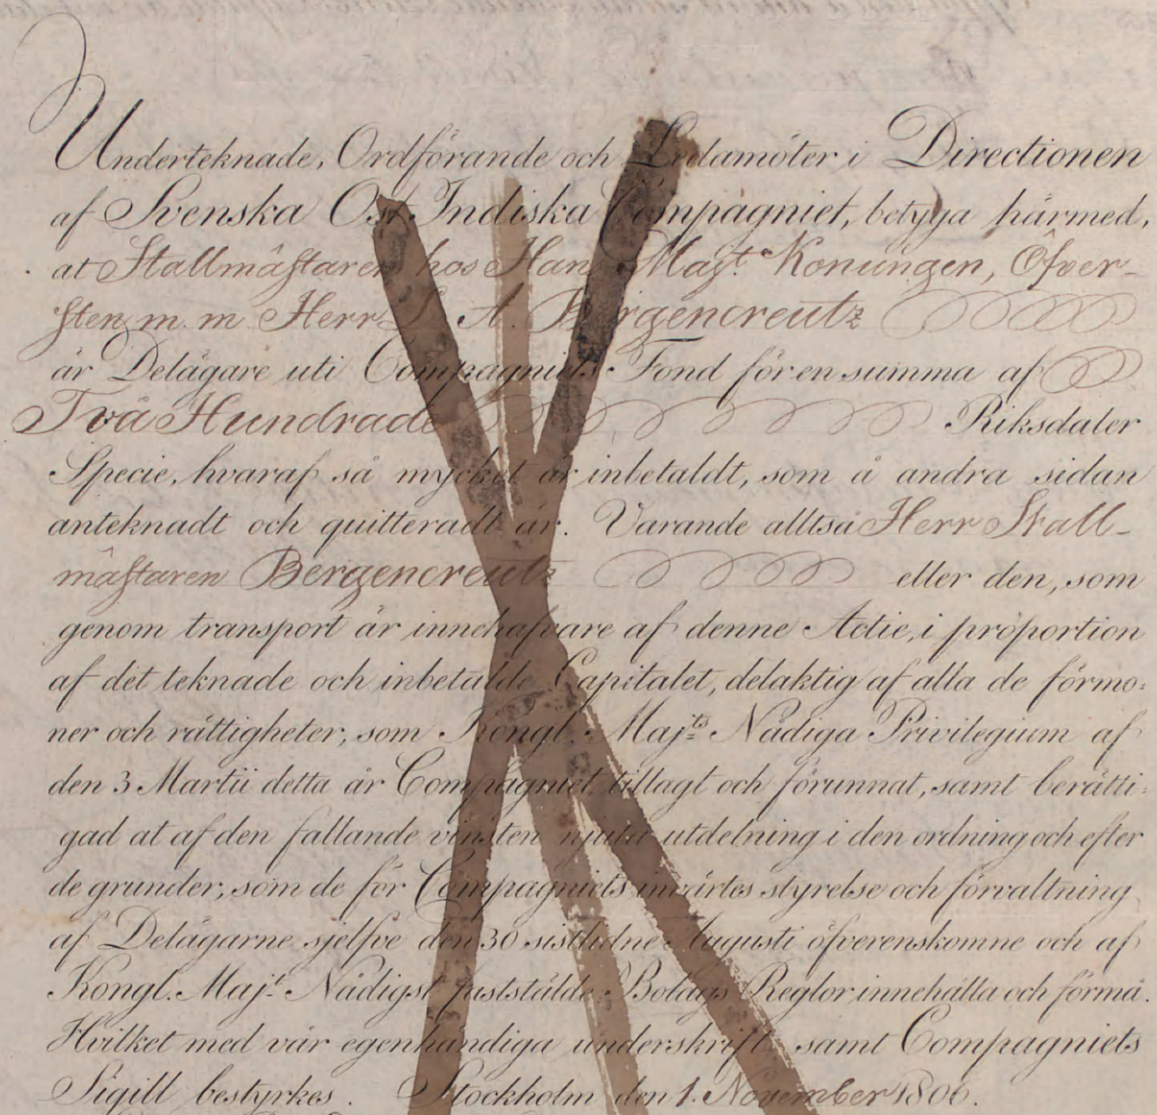 Underteknade, Ordförande och Ledamöter i Directionen
af Svenska Ost Indiska Compagniet, betyga härmed,
at Stallmästaren hos Hans Majt. Konungen, Öfver-
sten m. m Herr L. A. Bergencreutz
är Delägare uti Compagniets Fond för en summa af
Två Hundrade Riksdaler
Specie, hvaraf så mycket är inbetaldt, som å andra sidan
anteknadt och quitteradt är. Varande alltså Herr Stall-
mästaren Bergencreutz eller den, som
genom transport är innehafvare af denne Actie, i proportion
af det teknade och inbetalde Capitalet, delaktig af alla de förmo-
ner och rättigheter, som Kongl. Majts Nådiga Privilegium af
den 3 Martii detta år Compagniet tillagt och förunnat, samt berätti-
gad at af den fallande vinsten njuta utdelning i den ordning och efter
de grunder, som de för Compagniets invärtes styrelse och förvaltning
af Delägarne sjelfve den 30 sistlidne Augusti öfverenskomne och af
Kongl. Majt. Nådigst fastställde Bolags Reglor innehålla och förmå.
Hvilket med vår egenhändiga underskrift, samt Compagniets
Sigill bestyrkes. Stockholm den 1. November 1806.